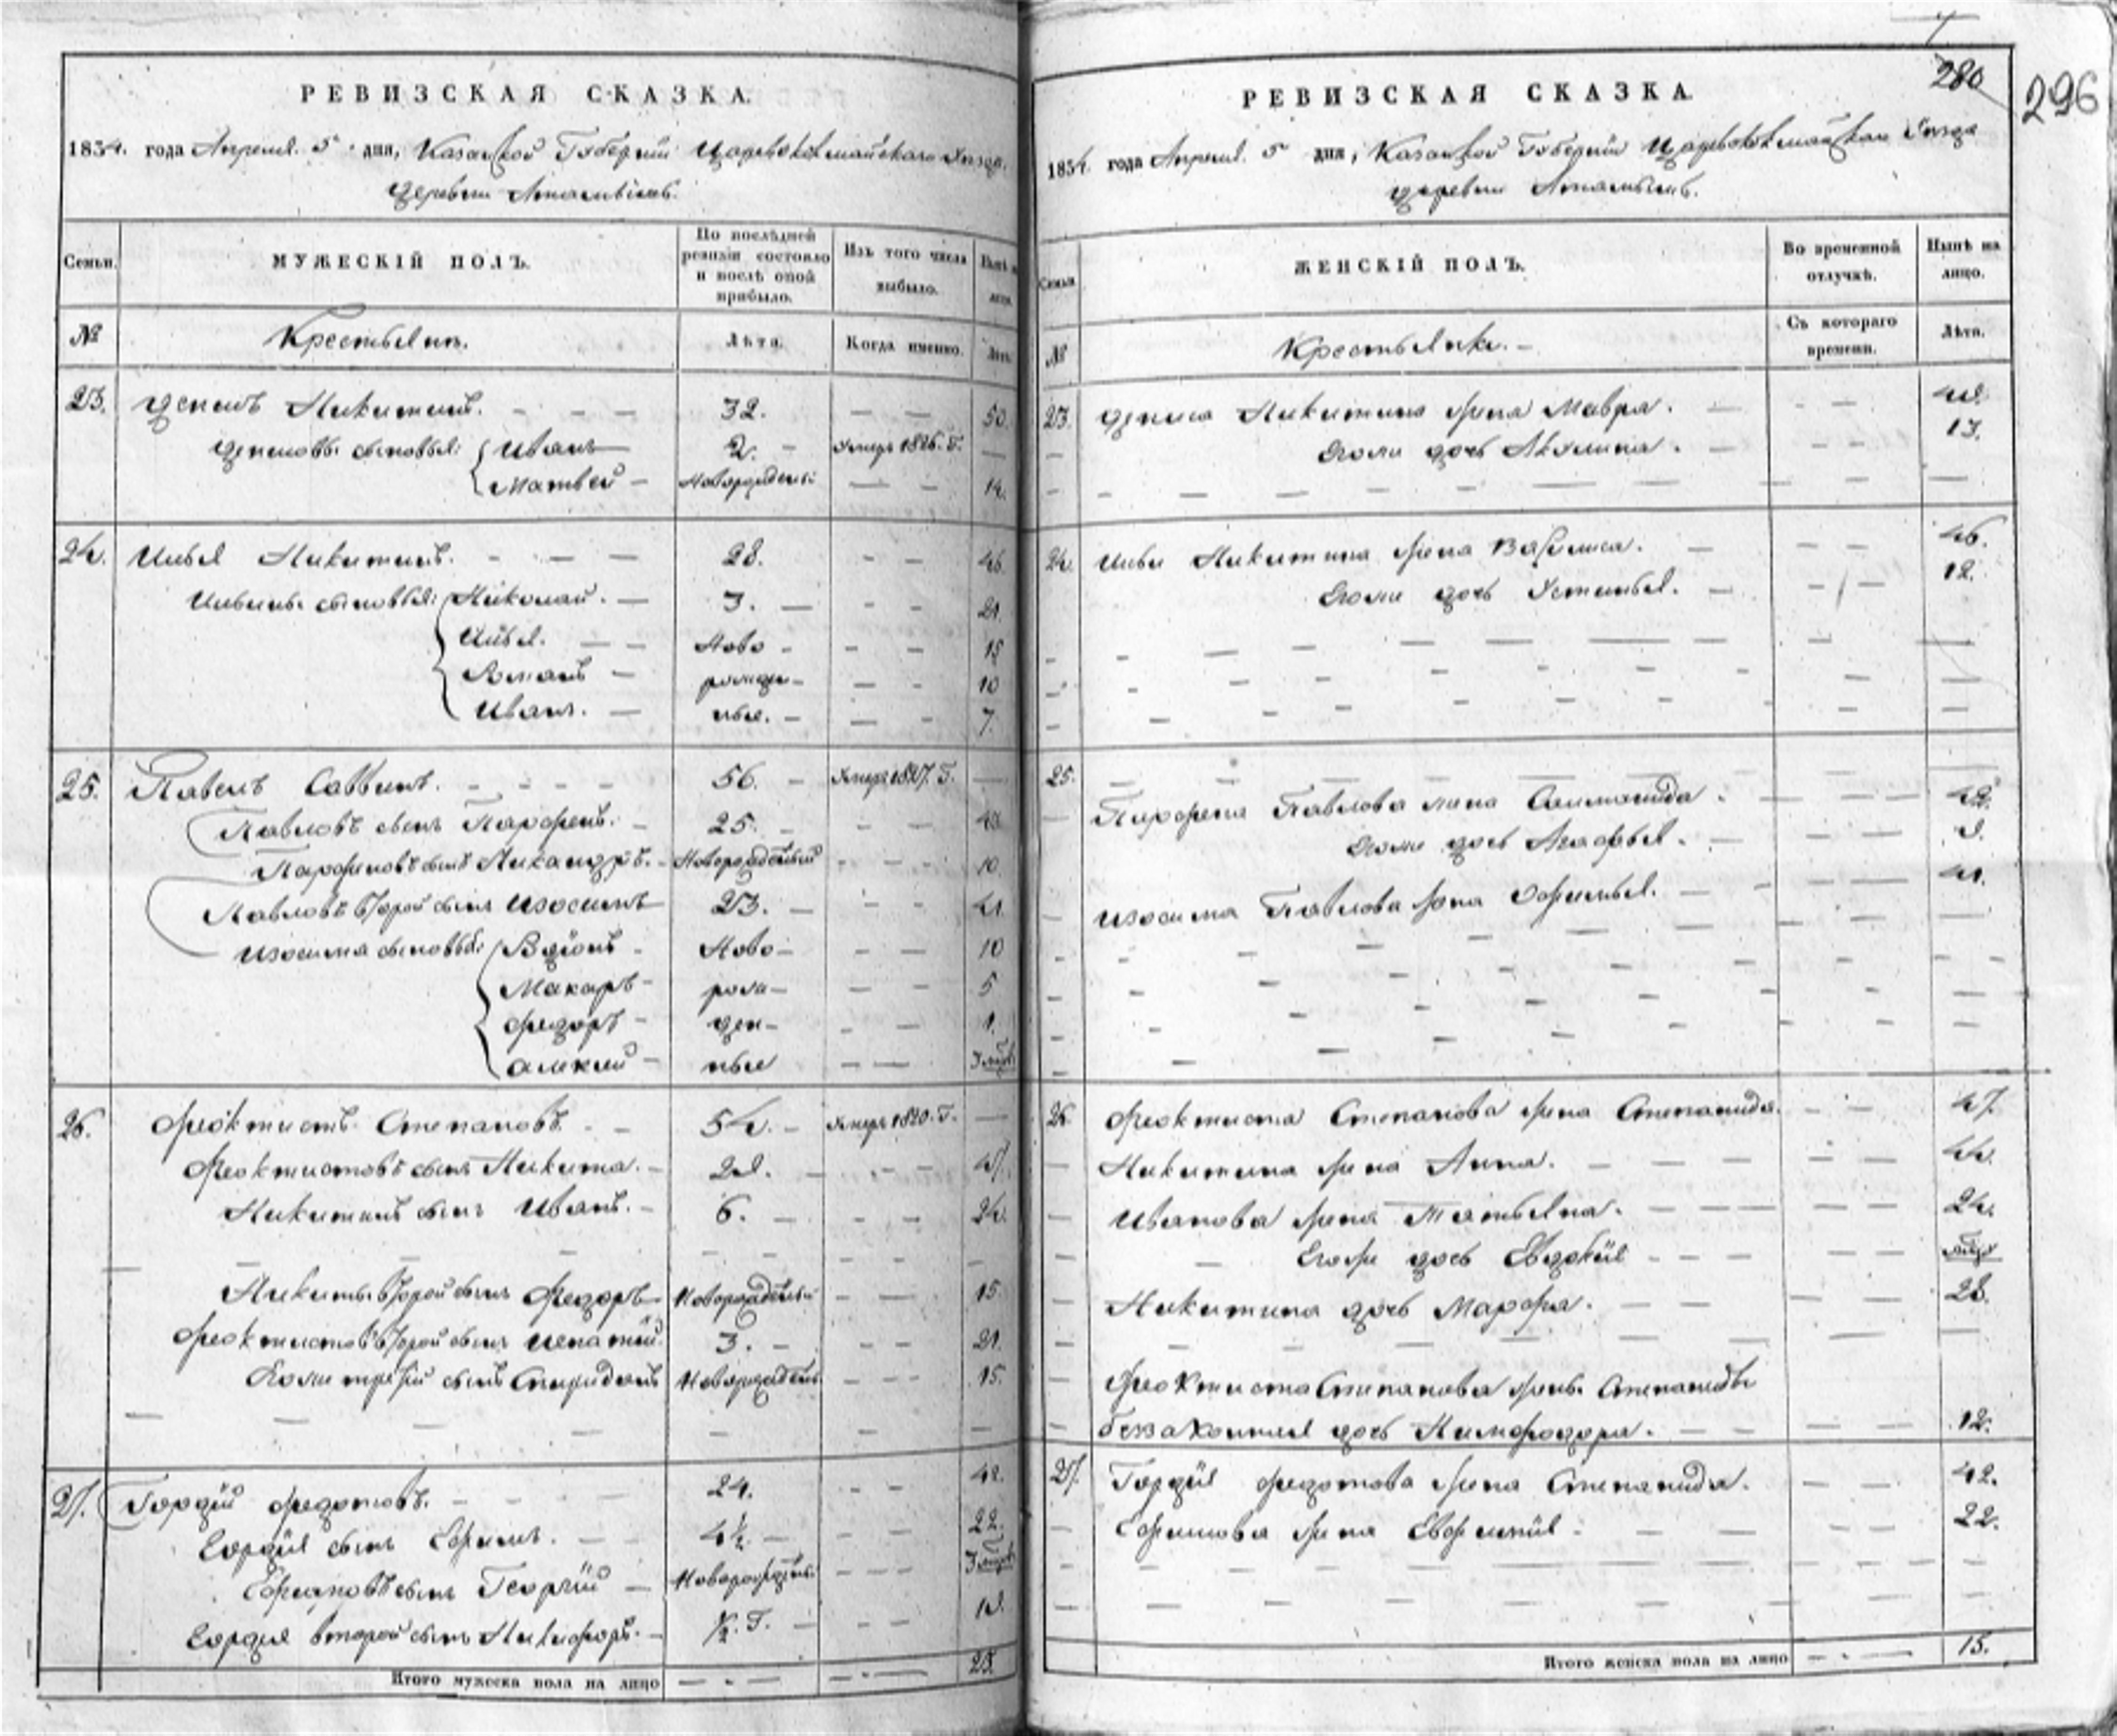 РЕВИЗСКАЯ СКАЗКА.
1834. года Апреля 5 дня, Казанской Губернии Царевококшайского Уезда
деревни
Семьи.
МУЖЕСКІЙ ПОЛЪ.
По послѣдней ревизіи состояло и послѣ оной прибыло.
Изъ того числа выбыло.
Нынѣ на лицо.
№
Крестьяне.
Лѣта.
Когда именно.
Лѣта.
23. Денисъ Никитинъ. 32. 50.
Денисовы сыновья: Иванъ 2. Умеръ 1826. Г.
Матвей Новорожденный 14.
24. Илья Никитинъ. 28. 46.
Ильины сыновья: Николай. 3. 21.
Илья. Ново 15
Романъ рожден- 10
Иванъ. ные. 7.
25. Павелъ Саввинъ. 56. Умеръ 1827. Г.
Павловъ сынъ Парфенъ. 25.
Парфеновъ сынъ Никандръ. Новорожденный 10
Павловъ второй сынъ Изосимъ 23. 41
Изосима сыновья: Ново- 10
Макаръ рож- 5
Федоръ ден- 1.
ные
26. Феоктистъ Степановъ 54. Умеръ 1820. Г.
Феоктистовъ сынъ Никита. 29. 47.
Никитинъ сынъ Иванъ. 6. 24.
Никиты второй сынъ Федоръ Новорожденный 15.
Феоктистовъ второй сынъ Ипатій 3. 21.
Его же третій сынъ Спиридонъ Новорожденный 15.
27. Гордій Федотовъ. 24. 42.
Гордія сынъ Ефимъ. 4½ 22.
Ефимовъ сынъ Георгій Новорожденный
Гордія второй сынъ Никифоръ. ½. Г.
Итого мужеска пола на лицо 25.
280
296
РЕВИЗСКАЯ СКАЗКА.
1834. года Апреля 5 дня, Казанской Губернии Царевококшайского Уезда
деревни
Семьи.
ЖЕНСКІЙ ПОЛЪ.
Во временной отлучкѣ.
Нынѣ на лицо.
№
Крестьянки.
Съ котораго времени.
Лѣта.
23. Дениса Никитина жена Мавра.
Его же дочь Акулина. 13.
24. Ильи Никитина жена Василиса. 46.
Его же дочь Устинья. 12.
25.
Парфена Павлова жена 42.
Его же дочь Агафья. 9.
Изосима Павлова жена Офимья. 41.
26. Феоктиста Степанова жена Степанида. 47.
Никитина жена Анна. 44.
Иванова жена Татьяна. 24.
Его же дочь Евдокія
Никитина дочь Марфа. 28.
Феоктиста Степанова жены Степаниды
беззаконная дочь Нимфодора. 12.
27. Гордія Федотова жена Степанида. 42.
Ефимова жена Евфимія. 22.
Итого женска пола на лицо 15.